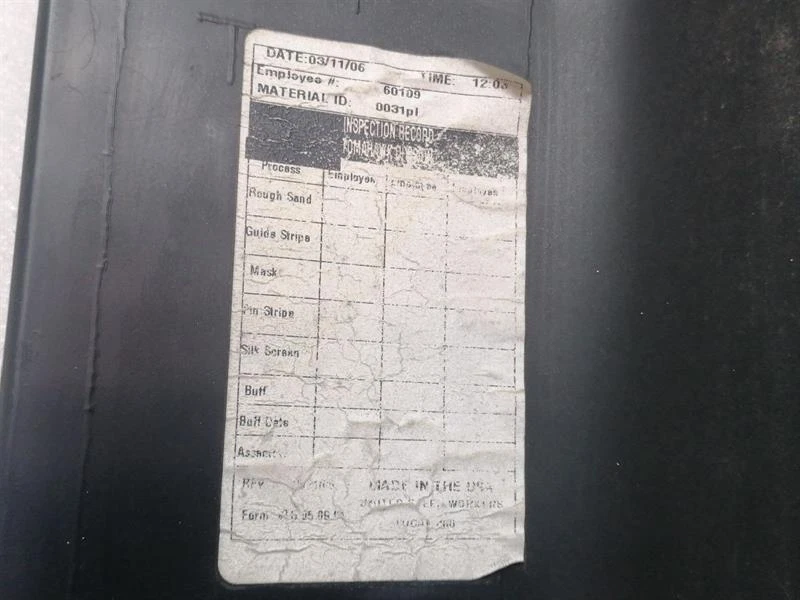 DATE:03/11/06 TIME: 12:03
Employee #: 60109
MATERIAL ID: 0031pl
INSPECTION RECORD
TOMAHAWK
Process Employee Employee Employee
Rough Sand
Guide Stripe
Mask
Pin Stripe
Silk Screen
Buff
Buff Date
REV
MADE IN THE USA
UNITED STEELWORKERS
Form
LOCAL